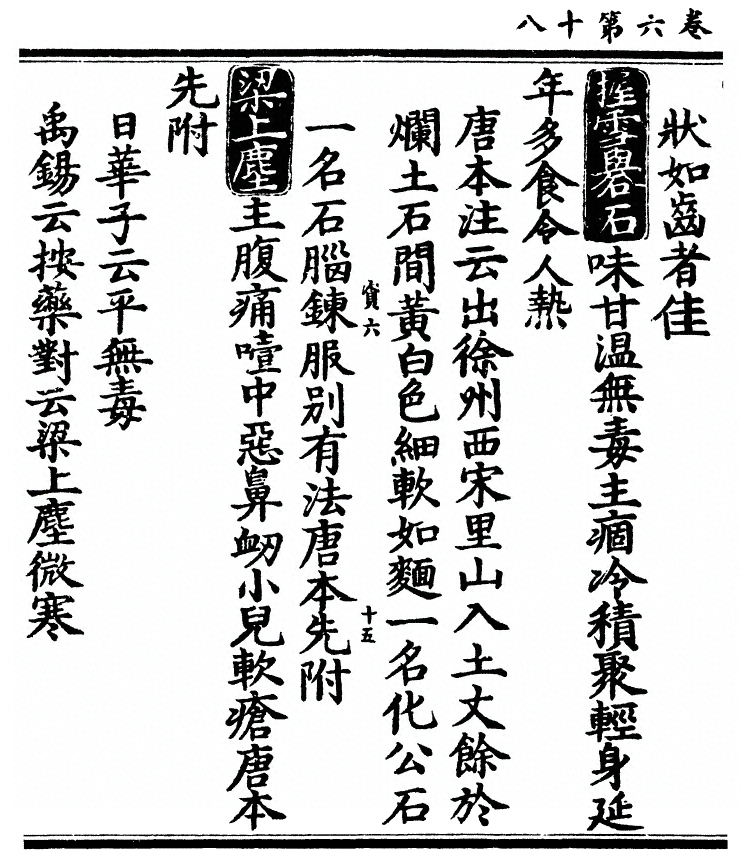 卷六第十八
狀如齒者佳
握雪礜石味甘温無毒主痼冷積聚輕身延
年多食令人熱
唐本注云出徐州西宋里山入土丈餘於
爛土石間黃白色細軟如麵一名化公石
貸六 十五
一名石腦鍊服別有法唐本先附
梁上塵主腹痛噎中惡鼻衂小兒軟瘡唐本
先附
日華子云平無毒
禹錫云按藥對云梁上塵微寒